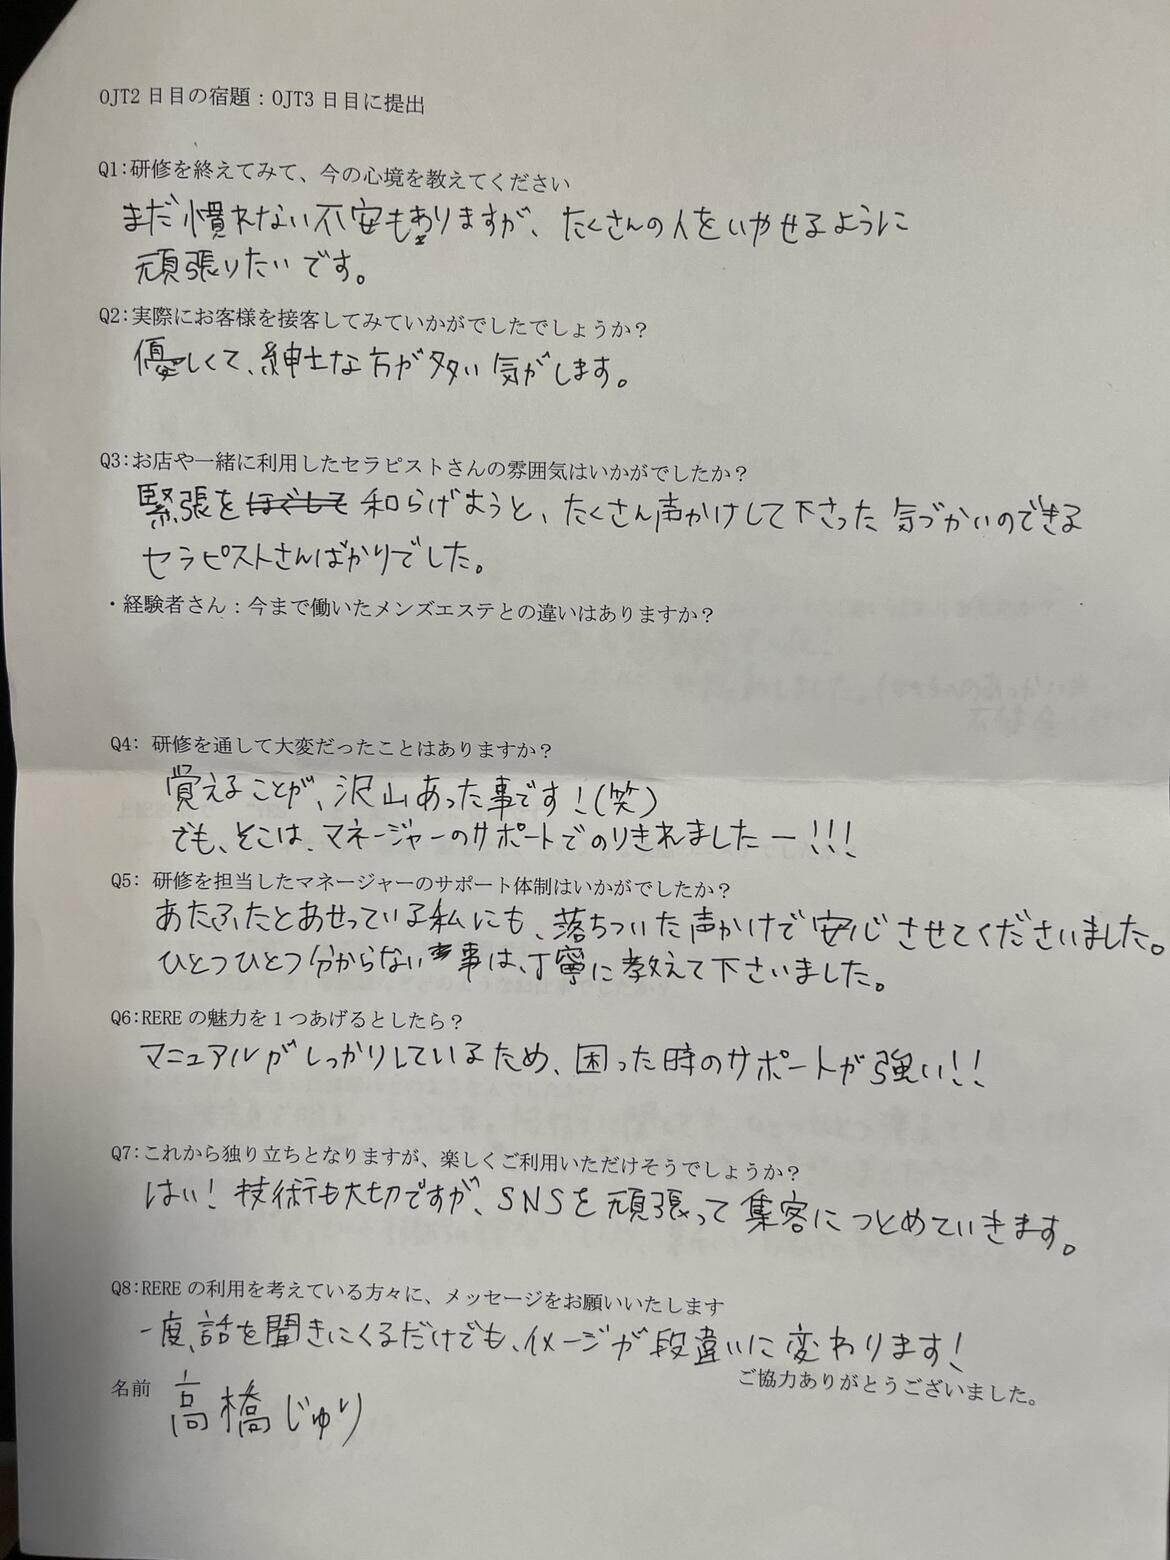 OJT2日目の宿題：OJT3日目に提出
Q1:研修を終えてみて、今の心境を教えてください
まだ慣れない不安もありますが、たくさんの人をいやせるように
頑張りたいです。
Q2:実際にお客様を接客してみていかがでしたでしょうか？
優しくて、紳士な方が多い気がします。
Q3:お店や一緒に利用したセラピストさんの雰囲気はいかがでしたか？
緊張をほぐして和らげようと、たくさん声かけして下さった気づかいのできる
セラピストさんばかりでした。
・経験者さん：今まで働いたメンズエステとの違いはありますか？
Q4: 研修を通して大変だったことはありますか？
覚えることが、沢山あった事です！(笑)
でも、そこは、マネージャーのサポートでのりきれましたー!!!
Q5: 研修を担当したマネージャーのサポート体制はいかがでしたか？
あたふたとあせっている私にも、落ちついた声かけで安心させてくださいました。
ひとつひとつ分からない事は、丁寧に教えて下さいました。
Q6:REREの魅力を1つあげるとしたら？
マニュアルがしっかりしているため、困った時のサポートが強い!!
Q7:これから独り立ちとなりますが、楽しくご利用いただけそうでしょうか？
はい！技術も大切ですが、SNSを頑張って集客につとめていきます。
Q8:REREの利用を考えている方々に、メッセージをお願いいたします
一度、話を聞きにくるだけでも、イメージが段違いに変わります！
ご協力ありがとうございました。
名前 高橋じゅり